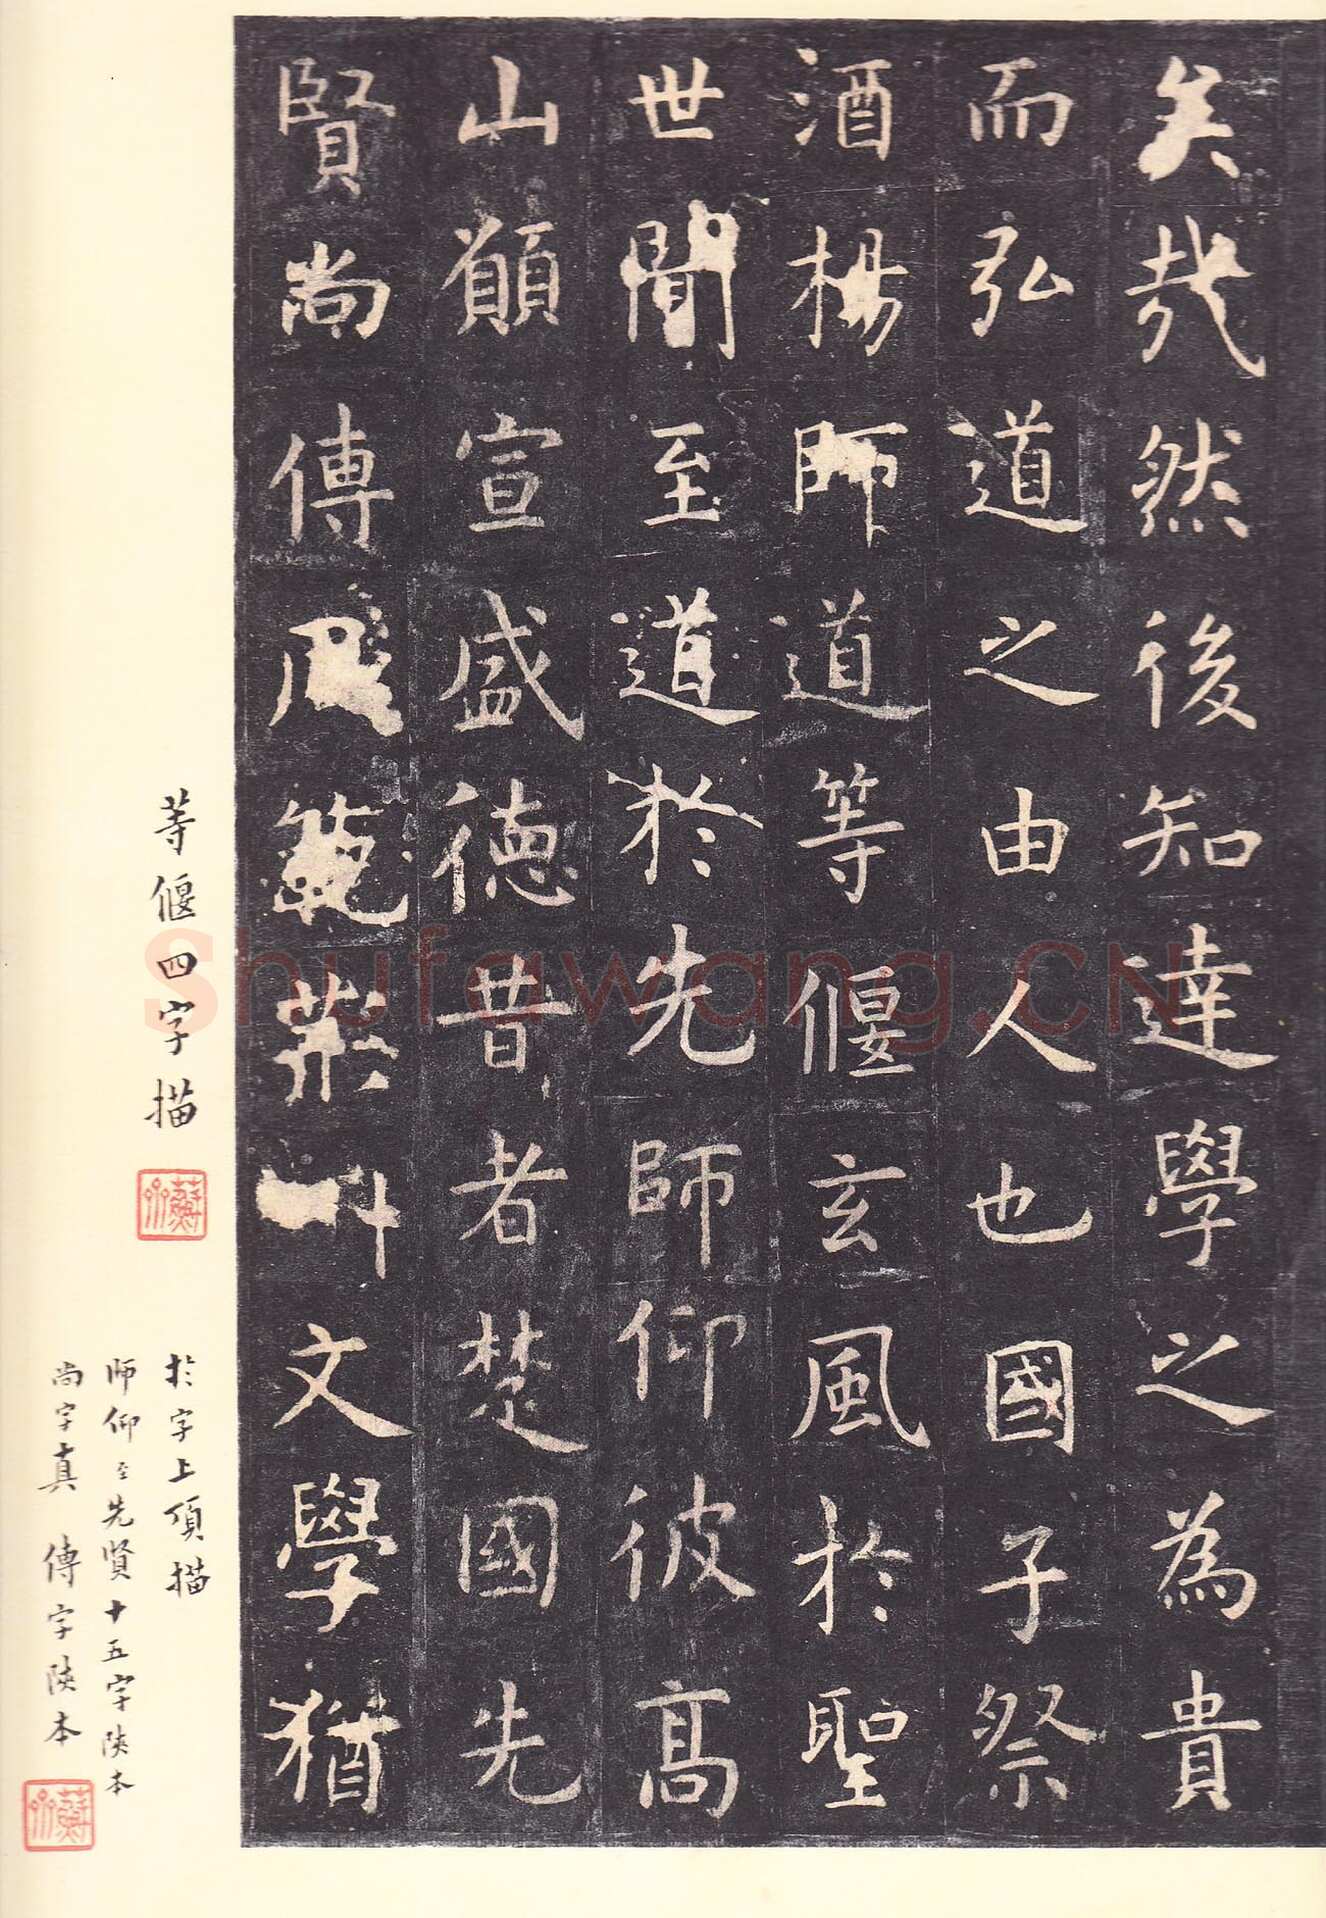 矣哉然後知達學之為貴
而弘道之由人也國子祭
酒楊師道等偃玄風於聖
世聞至道於先師仰彼高
山願宣盛德昔者楚國先
賢尚傳風範荊州文學猶
等偃四字描
蘇
於字上項描
師仰至先賢十五字陝本
尚字真 傳字陝本
蘇
Shufawang.CN